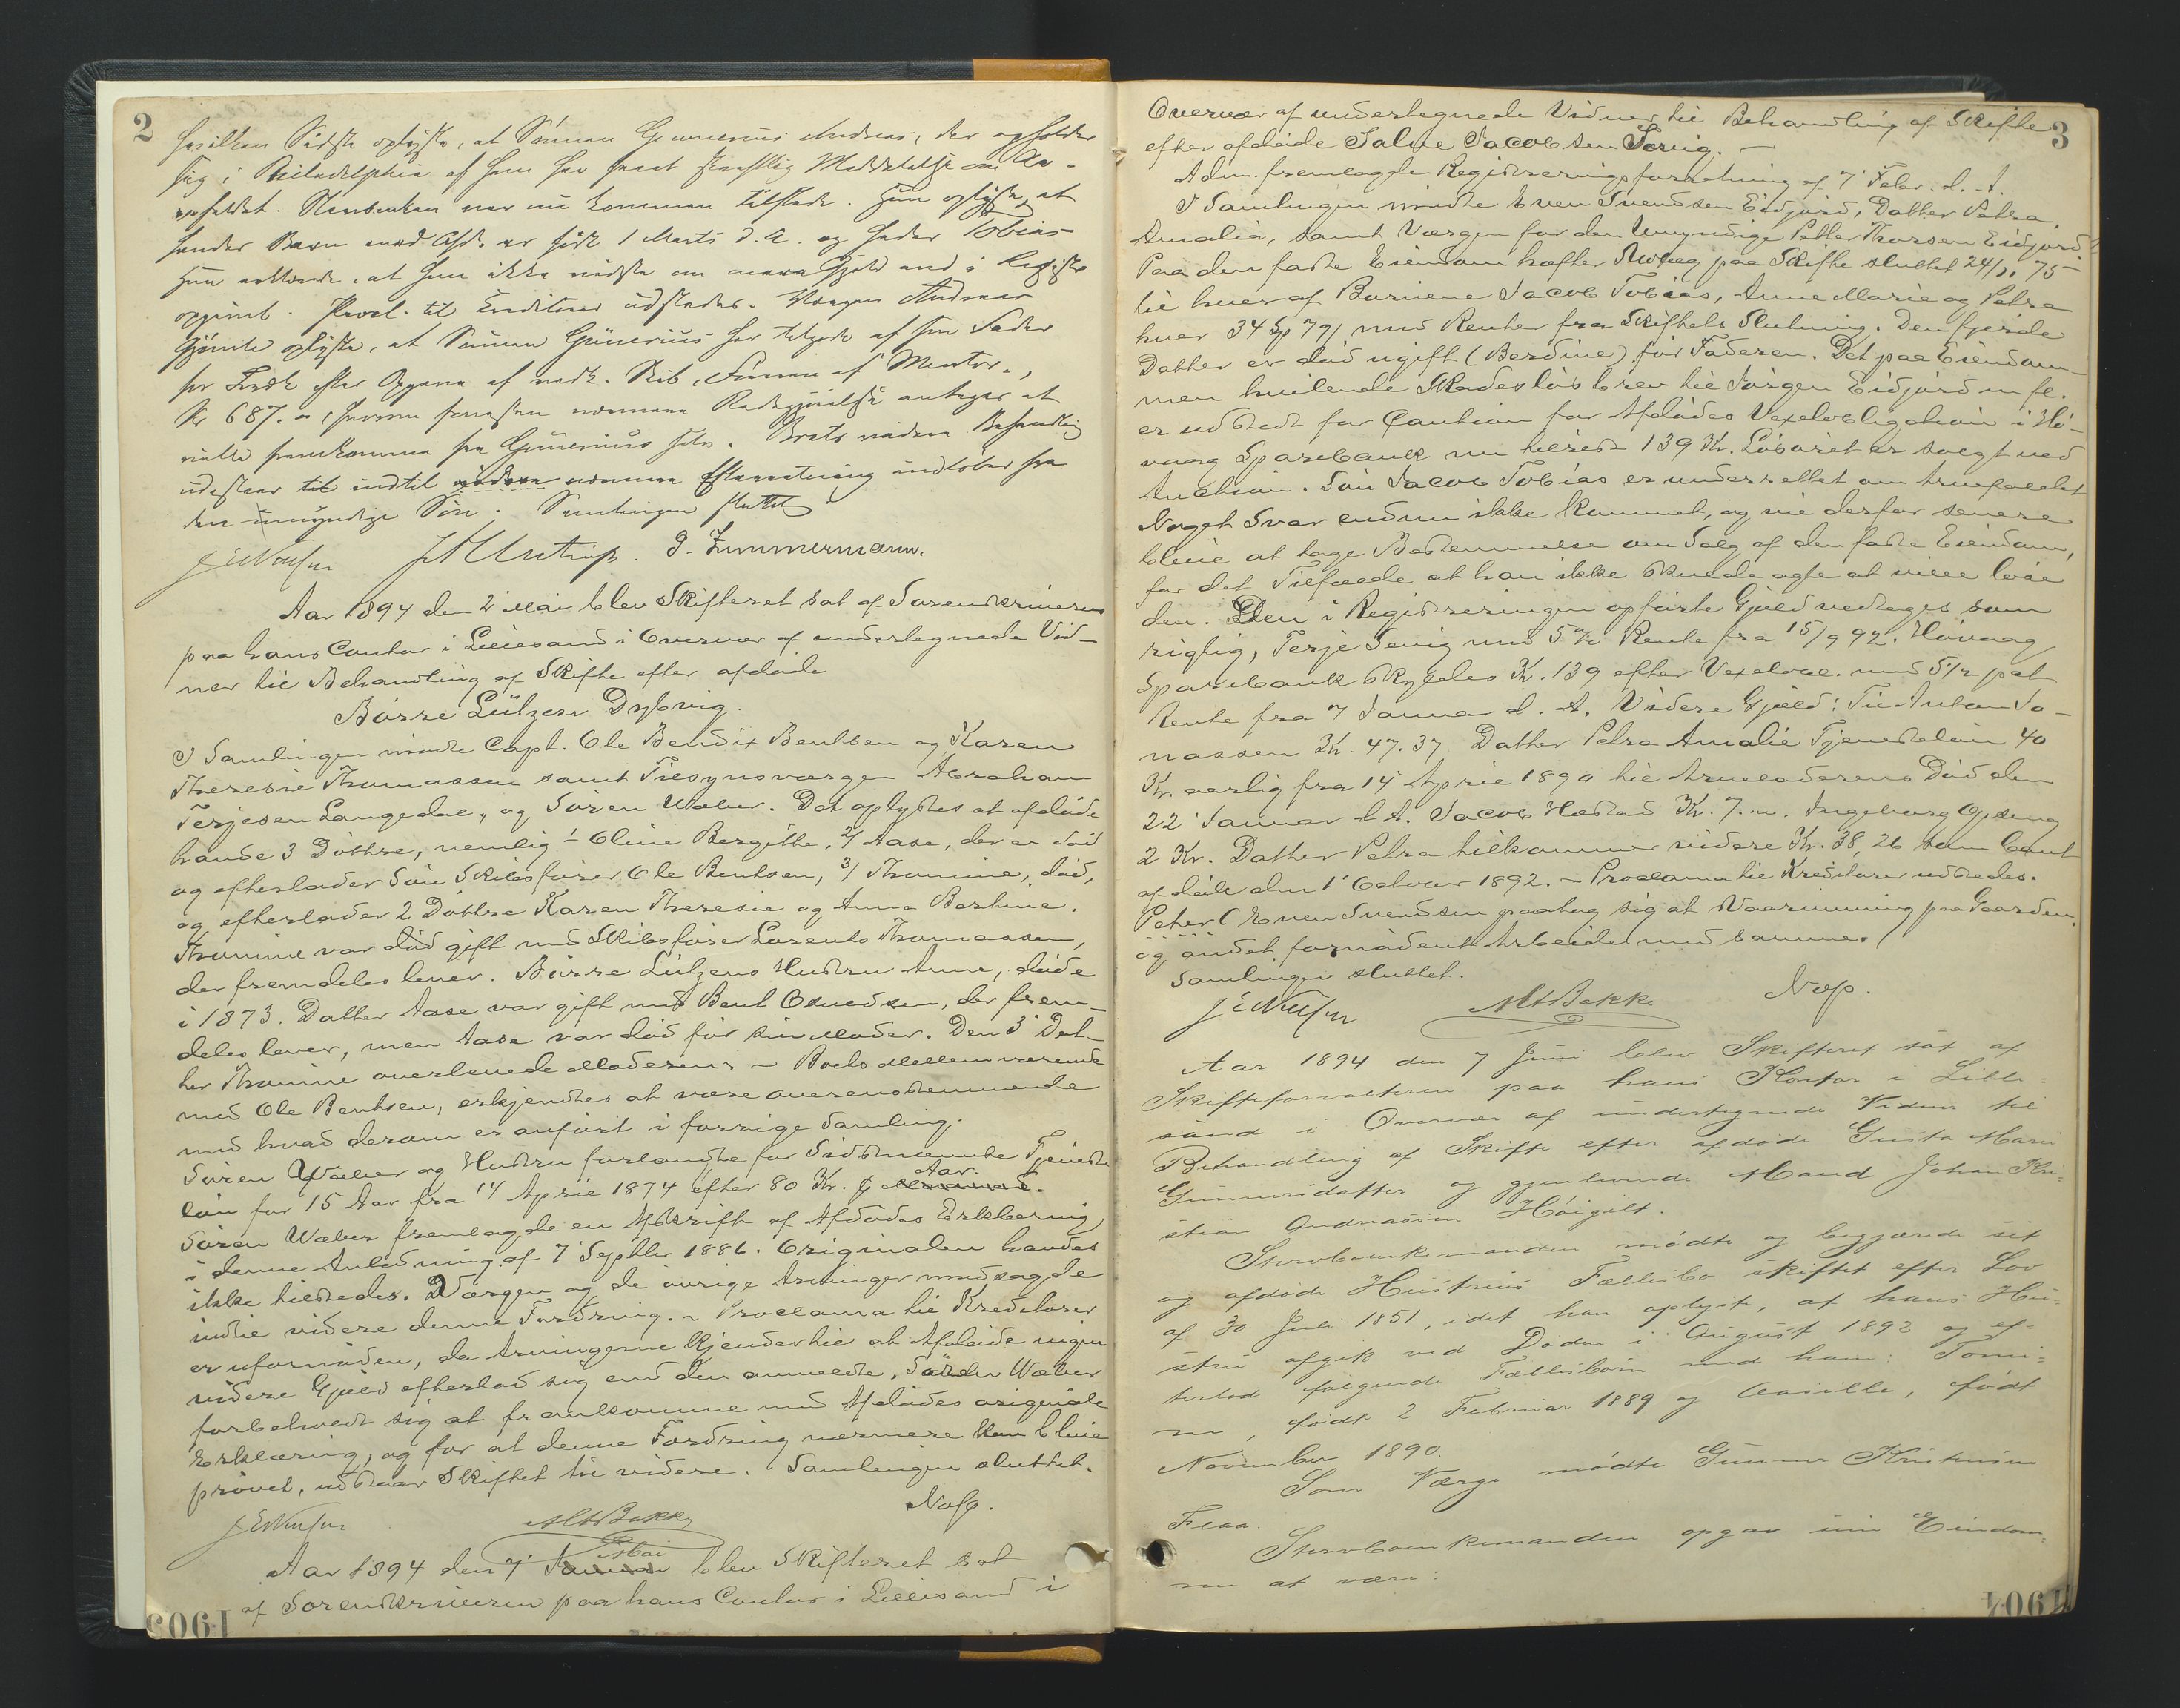 2
hvilken Sidste oplyste, at Sönnen Gunnerius Andreas, der opholder
sig i Philadelphia af ham har faaet skriftlig Meddelelse om
Enken var nu kommen tilstede. Hun oplyste, at
hendes Barn med Afd. er født 1 Marts d. A. og heder Tobias
Hun erklærede, at hun ikke vidste om mere Gjæld end i Registr.
opgivet. Procl. til Creditorer udstedes. Værgen Andreas
oplyste, at Sönnen Gunerius har tilgode af sin Fader
for efter Opgave af nedl. Skib, "Firma af Mentor",
Kr 687. nærmere Redegjørelse antages at
ville fremkomme fra Gunerius selv. Boets videre Behandling
udestaar til indtil videre nærmere Efterretning indløber fra
den umyndige Sön. Samlingen sluttet
J. Zimmermann.
Aar 1894 den 2' Mai blev Skifteret sat af Sorenskriveren
paa hans Contor i Lillesand i Overvær af undertegnede Vid-
ner til Behandling af Skifte efter afdøde
Börre Lützow Dybvig.
I Samlingen mødte Capt. Ole Bendix Bentsen og Karen
Theresie Thomassen samt Tilsynsværgen Abraham
Terjesen Langedal, og Sören Wæber. Det oplystes at afdøde
havde 3 Döttre, nemlig 1/ Oline Bergitte, 2/ Aase, der er død
og efterlader Søn Skibsfører Ole Bentsen, 3/ Thomine, død,
og efterlader 2 Döttre Karen Theresie og Anna Bertine.
Thomine var død gift med Skibsfører Lorents Thomassen,
der fremdeles lever. Börre Lützows Hustru Anne, døde
i 1873. Datter Aase var gift med Bent Osuldsen, der frem-
deles lever, men Aase var død før sin Moder. Den 3' Dat-
ter Thomine overlevede Moderen. - Boets Mellemværende
med Ole Bentsen, erkjendtes at være overensstemmende
med hvad derom er anført i forrige Samling.
Sören Wæber og Hustru forlangte for Sidstnævnte Tjeneste
løn for 15 Aar fra 14 April 1874 efter 80 Kr. p Aar.
Sören Wæber fremlagde en Afskrift af Afdødes Erklæring
i denne Anledning af 7' Septbr 1886. Originalen havdes
ikke tilstede. Værgen og de øvrige Arvinger modsagde
indtil videre denne Fordring. - Proclama til Kreditorer
er ufornøden, da Arvingerne kjender til at Afdøde ingen
videre Gjæld efterlod sig end den anmeldte. Sören Wæber
forbeholdt sig at fremkomme med Afdødes originale
Erklæring, og for at denne Fordring nærmere kan blive
prøvet, udstaar Skiftet til videre. Samlingen sluttet.
Bakke
Aar 1894 den 7' Januar Mai blev Skifteret sat
af Sorenskriveren paa hans Contor i Lillesand i
1903
3
Overvær af undertegnede Vidner til Behandling af Skifte
efter afdøde Salve Jacobsen
Adm. fremlagde Registreringsforretning af 7' Febr. d. A.
I Samlingen mødte Even Svendsen Eidjord, Datter Petra
Amalia, samt Værgen for den Umyndige Petter Thorsen Eidjord.
Paa den faste Eiendom hæfter Udlæg paa Skifte sluttet 24/11 75
til hver af Børnene Jacob Tobias, Anne Marie og Petra
hver 34 Sp 79/ med Renter fra Skiftets Slutning. Den fjerde
Datter er død ugift (Berdine) før Faderen. Det paa Eiendom-
men hvilende Skadesløsbrev til Jörgen Eidjord m fl.
er udstedt for Caution for Afdødes Vexelobligation i Hö-
vaag Sparebank nu tilrest 139 Kr. Løsøret er solgt ved
Auction. Søn Jacob Tobias er underrettet om Arvefaldet.
Noget Svar endnu ikke kommet, og vil derfor senere
blive at tage Bestemmelse om Salg af den faste Eiendom,
for det Tilfælde at han ikke skulde agte at ville løse
den. Den i Registreringen opførte Gjæld vedtages som
rigtig, Terje med 5% Rente fra 15/9 92. Hövaag
Sparebank skyldes Kr. 139 efter Vexelobl. med 5½ pct
Rente fra 7 Januar d. A. Videre Gjæld: Til Anton Jo-
nassen Kr. 47.37 Datter Petra Amalie Tjenesteløn 40
Kr. aarlig fra 14' April 1890 til Arveladerens Død den
22' Januar d A. Jacob Kr. 7. Ingeborg
2 Kr. Datter Petra tilkommer videre Kr. 38,26 som laant
afdøde den 1' October 1892. - Proclama til Kreditorer udstedes.
Peter (Even Svendsen paatog sig at Vaaronning paa Gaarden
og andet fornødent Arbeide med samme.)
Samlingen sluttet.
Bakke
Aar 1894 den 7 Juni blev Skifteret sat af
Skifteforvalteren paa hans Kontor i Lille-
sand i Overvær af undertegnede Vidner til
Behandling af Skifte efter afdøde Gusta Marie
Gunnersdatter og gjenlevende Mand Johan Kri-
stian Andreassen
Stervboenkemanden mødte og begjærede sit
og afdøde Hustrus Fællesbo skiftet efter Lov
af 30 Juli 1851, idet han oplyste, at hans Hu-
stru afgik ved Døden i August 1892 og ef-
terlod følgende Fællesbørn med ham: Tomi-
ne, født 2 Februar 1889 og født
November 1890.
Som Værge mødte Gunner Kristensen
Flaa.
Stervboenkemanden opgav sin Eiendom-
me at være:
1904